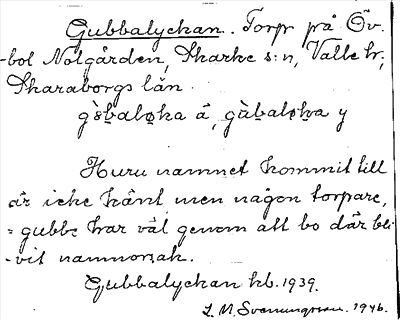 Gubbalyckan. Torp på Öv.
-bol Nolgården, Skarke s:n, Valle hr,
Skaraborgs län.
Huru namnet kommit till
är icke känt men någon torpare,
=gubbe har väl genom att bo där bli
-vit namnorsak.
Gubbalyckan hb. 1939.
L. M. Svenungsson. 1946.